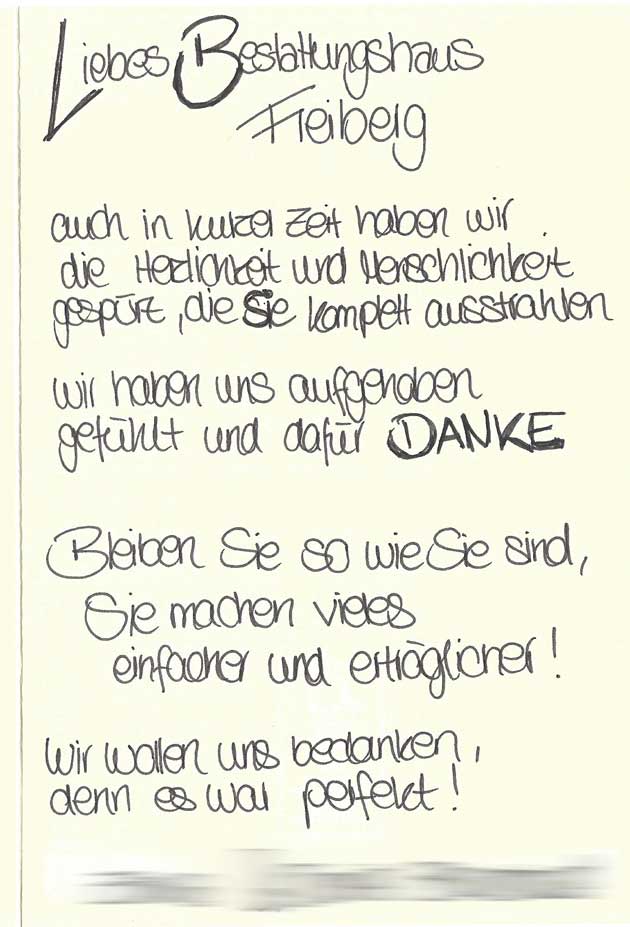 Liebes Bestattungshaus
Freiberg
auch in kurzer Zeit haben wir
die Herzlichkeit und Menschlichkeit
gespürt, die Sie komplett ausstrahlen
wir haben uns aufgehoben
gefühlt und dafür DANKE
Bleiben Sie so wie Sie sind,
Sie machen vieles
einfacher und erträglicher!
wir wollen uns bedanken,
denn es war perfekt!